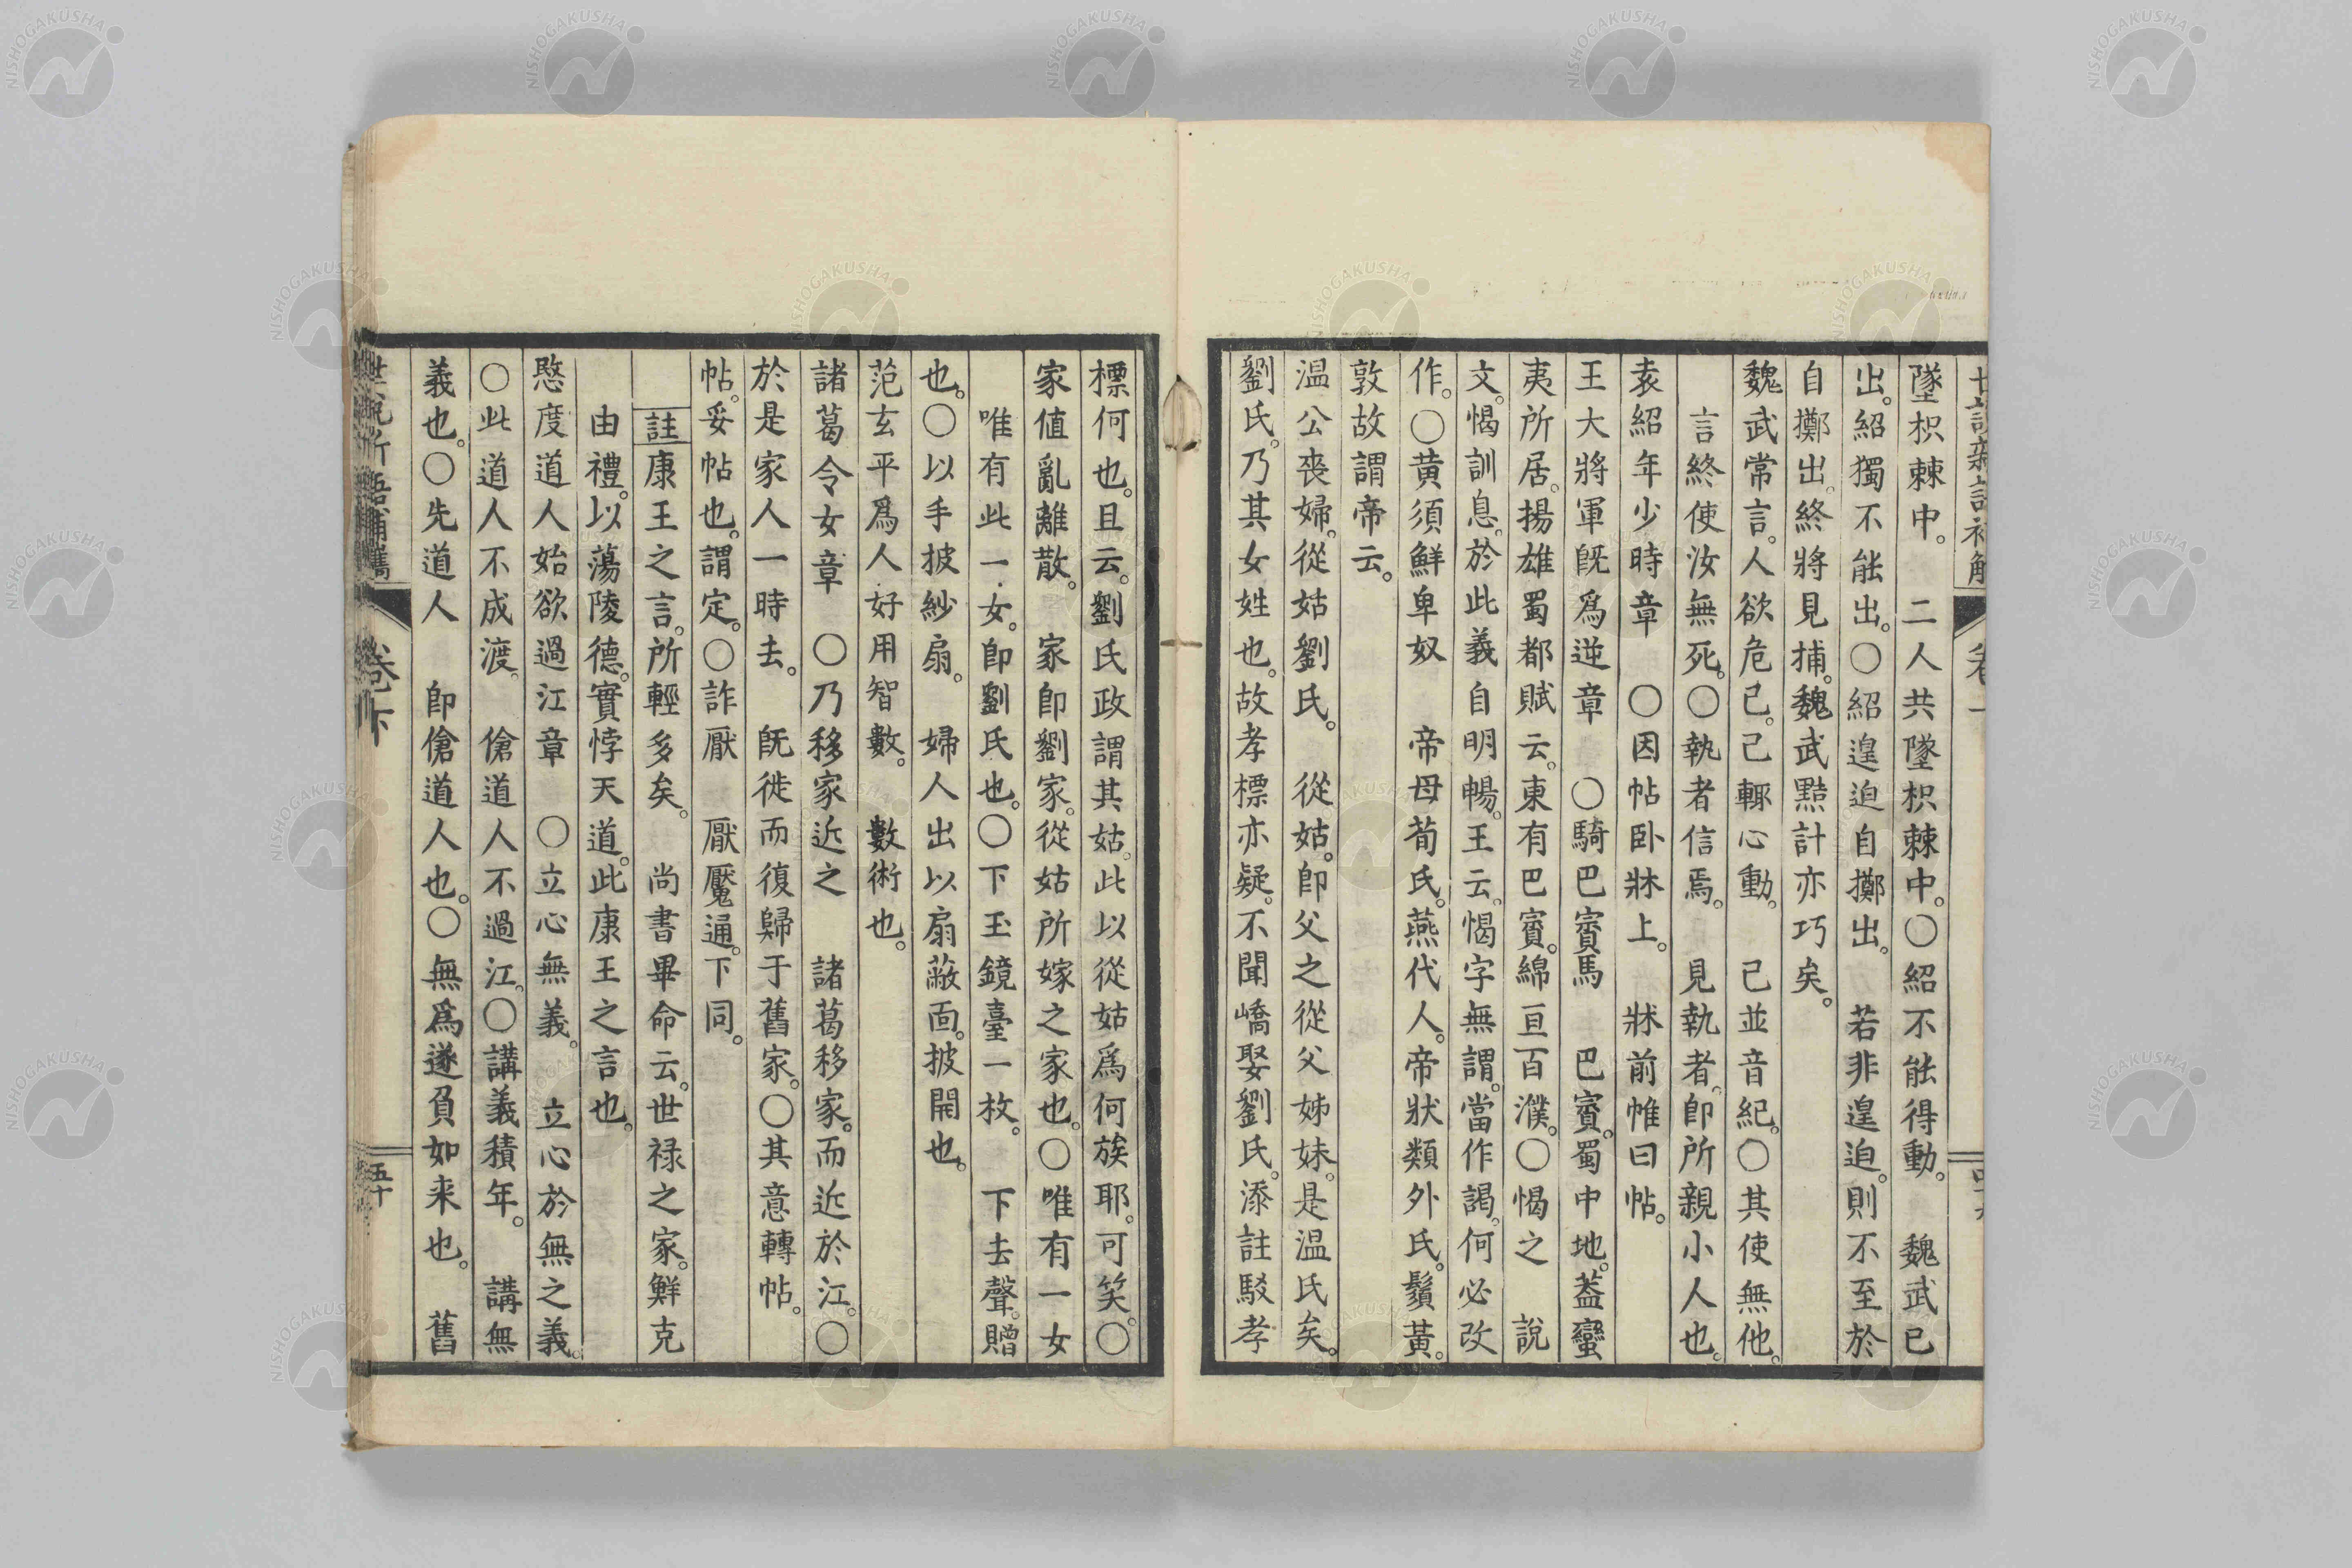 墜枳棘中。　二人共墜枳棘中。○紹不能得動。　魏武已
出。紹獨不能出。○紹遑迫自擲出。　若非遑迫。則不至於
自擲出。終將見捕。魏武黠計亦巧矣。
魏武常言。人欲危己。己輒心動。　己並音紀。○其使無他。
言終使汝無死。○執者信焉。　見執者。即所親小人也。
袁紹年少時章　○因帖卧牀上。　牀前帷曰帖。
王大將軍旣爲逆章　○騎巴賨馬　巴賨。蜀中地。蓋蠻
夷所居。揚雄蜀都賦云。東有巴賨。綿亘百濮。○愒之　說
文。愒訓息。於此義自明暢。王云。愒字無謂。當作謁。何必改
作。○黄須鮮卑奴　帝母荀氏。燕代人。帝狀類外氏。鬚黃。
敦故謂帝云。
温公喪婦。從姑劉氏。　從姑。即父之從父姊妹。是温氏矣。
劉氏。乃其女姓也。故孝標亦疑。不聞嶠娶劉氏。添註駁孝
標何也。且云。劉氏政謂其姑。此以從姑爲何族耶。可笑。○
家值亂離散。　家即劉家。從姑所嫁之家也。○唯有一女
唯有此一女。即劉氏也。○下玉鏡臺一枚。　下去聲。贈
也。○以手披紗扇。　婦人出以扇蔽面。披開也。
范玄平爲人好用智數。　數術也。
諸葛令女章　○乃移家近之　諸葛移家。而近於江。○
於是家人一時去。　旣徙而復歸于舊家。○其意轉帖。
帖。妥帖也。謂定。○詐厭　厭魘通。下同。
註　康王之言。所輕多矣。　尚書畢命云。世禄之家。鮮克
由禮。以蕩陵德。實悖天道。此康王之言也。
愍度道人始欲過江章　○立心無義。　立心於無之義。
○此道人不成渡。　傖道人不過江。○講義積年。　講無
義也。○先道人　即傖道人也。○無爲遂負如来也。　舊
卷下
五十